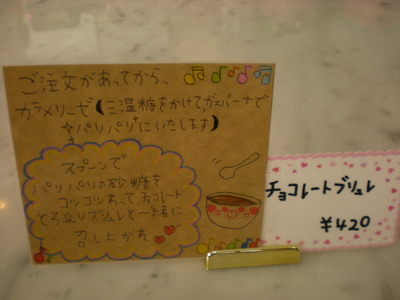 ご注文があってから、
カラメリーゼ(三温糖をかけて、ガスバーナで
パリパリにいたします)
スプーンで
パリパリの砂糖を
コツコツわって、チョコレート
とろ〜りブリュレと一緒に
召し上がれ
チョコレートブリュレ
¥420